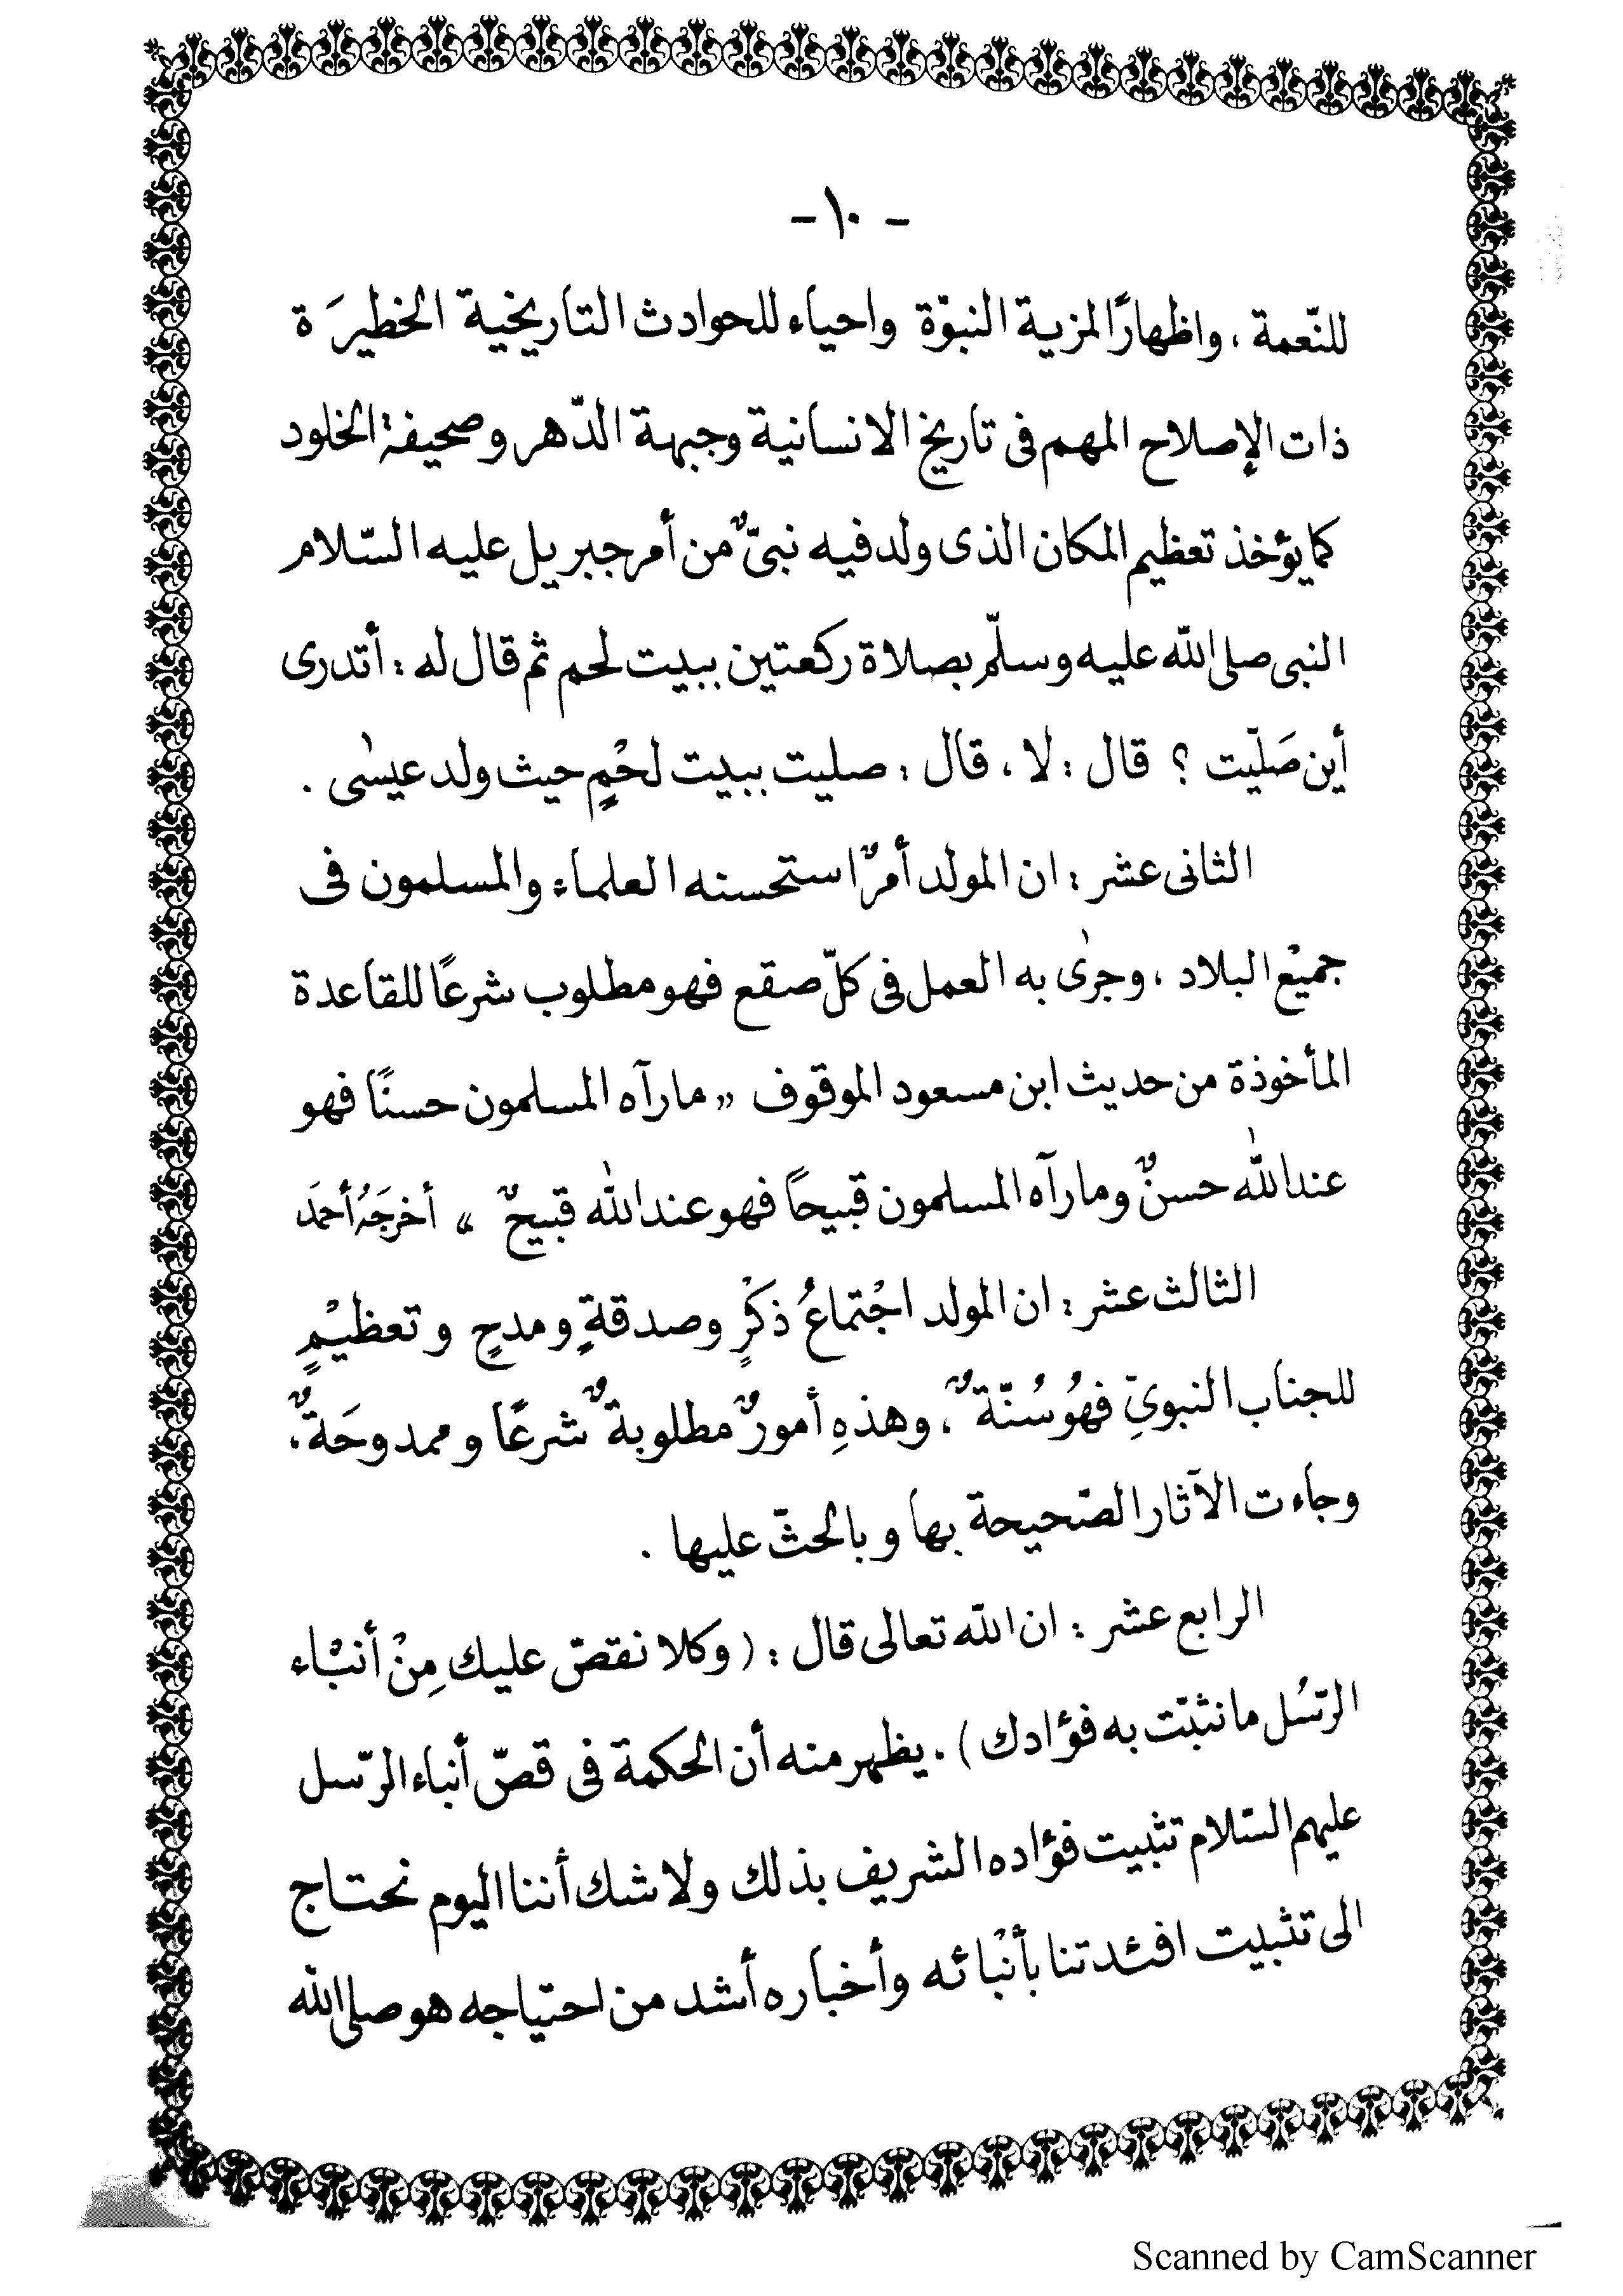 - ١٠ -
للنّعمة ، واظهارًا لمزية النبوّة واحياء للحوادث التاريخية الخطيرَة
ذات الإصلاح المهم فى تاريخ الانسانية وجبهة الدّهر وصحيفة الخلود
كما يؤخذ تعظيم المكان الذى ولد فيه نبىٌّ من أمر جبريل عليه السّلام
النبى صلى الله عليه وسلّم بصلاة ركعتين ببيت لحم ثم قال له : أتدرى
أين صَلّيت ؟ قال : لا ، قال : صليت ببيت لحْمٍ حيث ولد عيسٰى .
الثانى عشر : ان المولد أمرٌ استحسنه العلماء والمسلمون فى
جميْع البلاد ، وجرٰى به العمل فى كلّ صقع فهو مطلوب شرعًا للقاعدة
المأخوذة من حديث ابن مسعود الموقوف « مارآه المسلمون حسنًا فهو
عند الله حسنٌ ومارآه المسلمون قبيحًا فهو عند الله قبيحٌ » أخرجَهُ أحمَد
الثالث عشر : ان المولد اجْتماعُ ذكْرٍ وصدقةٍ ومدحٍ وتعظيْمٍ
للجناب النبوىِّ فهُو سُنّةٌ ، وهذهِ أمورٌ مطلوبةٌ شرعًا وممدوحَةٌ ،
وجاءت الآثار الصّحيحة بها وبالحثّ عليها .
الرابع عشر : ان الله تعالى قال : (وكلا نقصّ عليك مِنْ أنبْاء
الرّسُل مانثبّت به فؤادك) . يظهر منه أن الحكمة فى قصّ أنباء الرّسل
عليهم السّلام تثبيت فؤاده الشريف بذلك ولاشك أننا اليوم نحتاج
الى تثبيت افئدتنا بأنْبائه وأخباره أشد من احتياجه هو صلى الله
Scanned by CamScanner